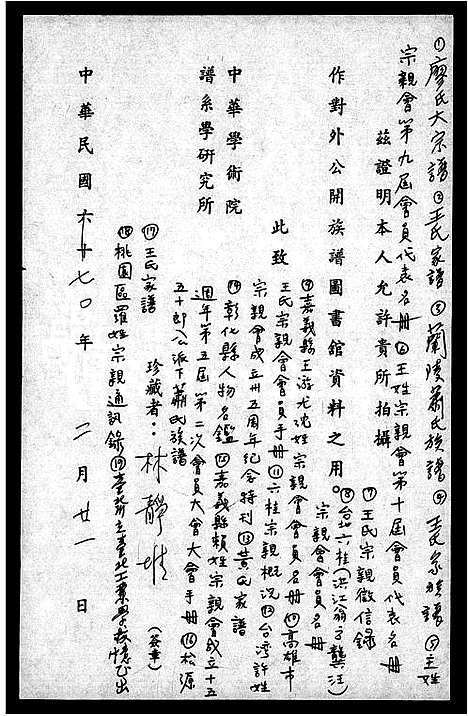 ①廖氏大宗譜②王氏家譜③蘭陵蕭氏族譜④王氏族譜⑤王姓
宗親會第九屆會員代表名冊⑥王姓宗親會第十屆會員代表名冊
茲證明本人允許貴所拍攝
⑦王氏宗親徵信錄
作對外公開族譜圖書館資料之用。
⑧台北六桂(洪江翁方龔汪)
宗親會會員名冊
此致
⑨嘉義縣王游尤沈姓宗親會會員名冊⑩高雄市
王氏宗親會會員手冊⑪六桂宗親概況⑫台灣許姓
宗親會成立卅五周年紀念特刊⑬黃氏家譜
中華學術院
⑭彰化縣人物名鑑⑮嘉義縣賴姓宗親會成立十五
譜系學研究所
週年第五屆第二次會員大會大會手冊⑯松源
五十郎公派下蕭氏族譜
⑰王氏家譜
珍藏者：林靜
(簽章)
⑱桃園區羅姓宗親通訊錄⑲臺灣省立臺北工業學校憶出
中華民國七〇年二月廿一日